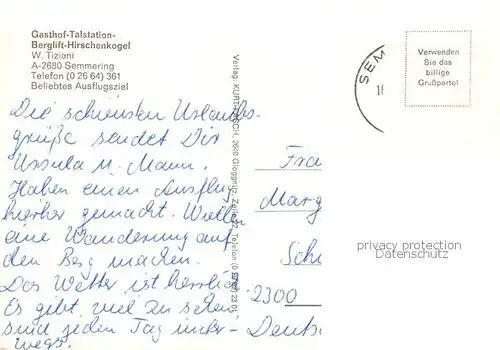 Gasthof-Talstation-
Berglift-Hirschenkogel
W. Tiziani
A-2680 Semmering
Telefon (0 26 64) 361
Beliebtes Ausflugsziel
Die schönsten Urlaubs-
grüße sendet Dir
Ursula u. Mann.
Haben einen Ausflug
hierher gemacht. Wollen
eine Wanderung auf
den Berg machen.
Das Wetter ist herrlich.
Es gibt viel zu sehen
sind jeden Tag unter-
wegs.
Verlag: KURT 2640 Gloggnitz, Zeile 22, Telefon
SEM
Verwenden
Sie das
billige
Grußporto!
Fra
Marg
Sch
2300
Deuts
privacy protection
Datenschutz